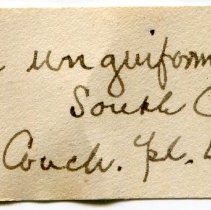 unguiform
South C
Couch. pl.